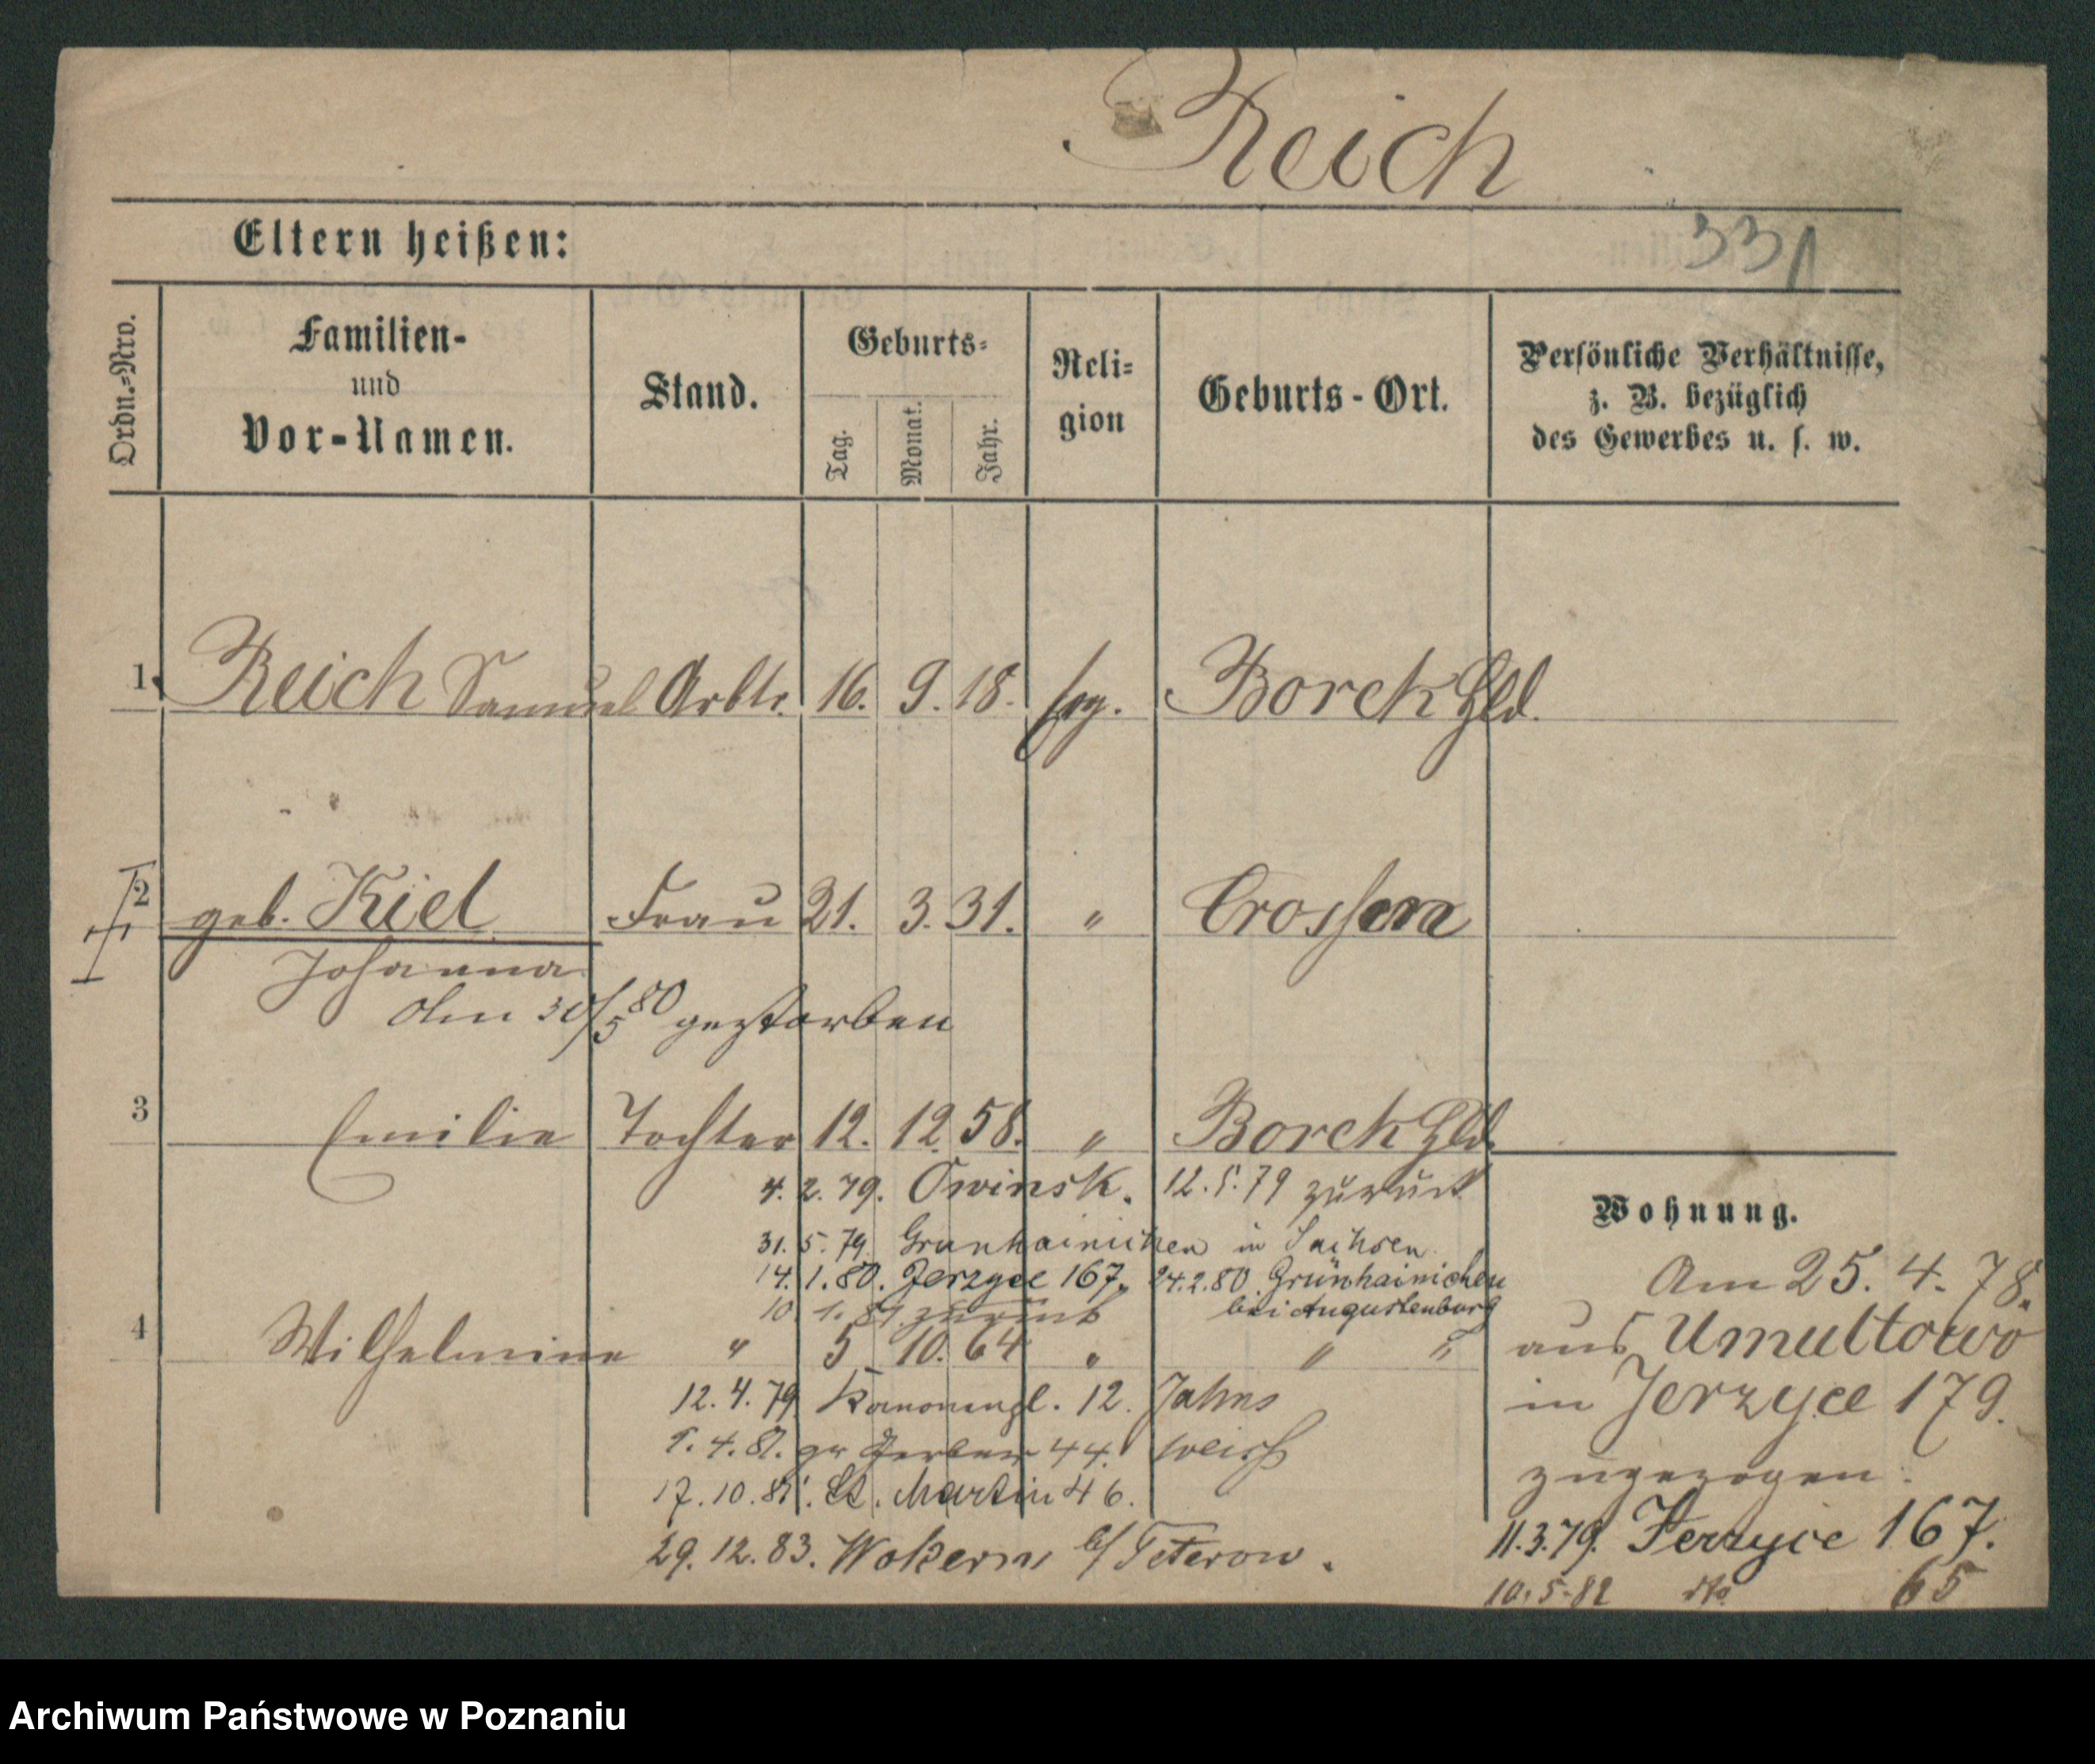 Reich
Eltern heißen:
331
Ordn.-Nro.
Familien-
und
Vor-Namen.
Stand.
Geburts-
Tag.
Monat.
Jahr.
Reli-
gion
Geburts-Ort.
Persönliche Verhältnisse,
z. B. bezüglich
des Gewerbes u. s. w.
1 Reich Samuel Arbtr. 16. 9. 18. Borck Hld.
2 geb. Kiel Frau 21. 3. 31. " Crossen
Johanna
den 30/5 80 gestorben
3 Emilie Tochter 12. 12. 58. " Borck Hld.
4. 2. 79. Owinsk. 12. 5. 79 zurück
31. 5. 79. Grunhainichen in Sachsen
14. 1. 80. Jerzyce 167. 24. 2. 80. Grünhainichen
10. 1. 81. zurück bei Augustenburg
4 Wilhelmine " 5 10. 64 " " "
12. 4. 79 Kanonenpl. 12. Jahns
1. 4. 81. gr Gerber 44. weiß
17. 10. 81. St. Martin 46.
29. 12. 83. Wokern b/ Teterow.
Wohnung.
Am 25. 4. 78.
aus Umultowo
in Jerzyce 179.
zugezogen.
11. 3. 79. Jerzyce 167.
10. 5. 82 dto 65
Archiwum Państwowe w Poznaniu